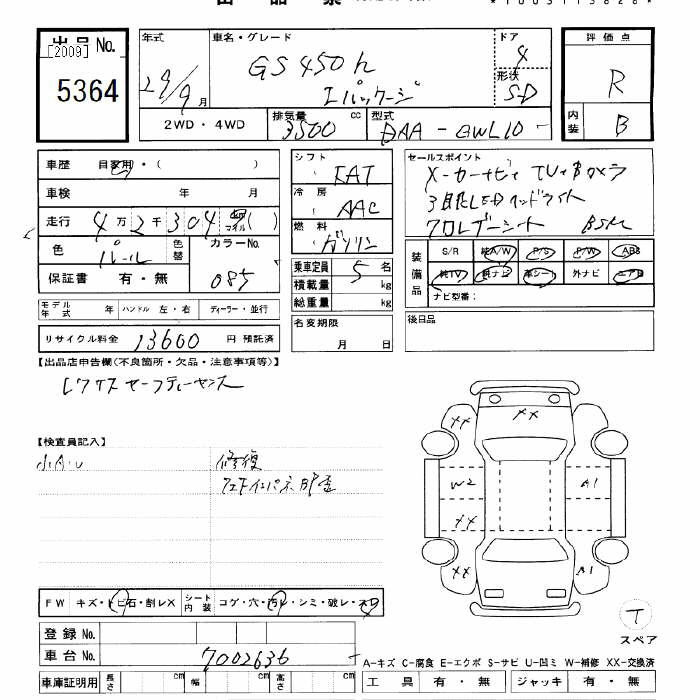 出品票
出品 No.
[2009]
5364
年式
29/9月
車名・グレード
GS450h
Iパッケージ
ドア
4
形状
S-D
評価点
R
内装
B
2WD・4WD
排気量 cc
3500
型式
DAA-GWL10-
車歴 自家用・( )
車検 年 月
走行 4万2千304
マイル
色 パール
色替
カラーNo.
085
保証書 有・無
モデル年式 年 ハンドル 左・右 ディーラー・並行
リサイクル料金 13600 円 預託済
シフト
FAT
冷房
AAC
燃料
ガソリン
乗車定員 5 名
積載量 kg
総重量 kg
名変期限
月 日
セールスポイント
メーカーナビ TV Bカメラ
3眼LEDヘッドライト
クロレザーシート BSM
装備品
S/R 純A/W P/S P/W ABS
純TV 純ナビ 革シート 外ナビ エアB
ナビ型番:
後日品
【出品店申告欄(不良箇所・欠品・注意事項等)】
レクサスセーフティーセンス
【検査員記入】
小A・U
修復
XX
XX
W2
A1
XX
XX
A1
FW キズ・トビ石・割レX
シート内装 コゲ・穴・汚レ・シミ・破レ・スレ
登録 No.
車台 No. 7002636
T
スペア
A-キズ C-腐食 E-エクボ S-サビ U-凹ミ W-補修 XX-交換済
車庫証明用 長さ cm 幅 cm 高さ cm
工具 有・無 ジャッキ 有・無